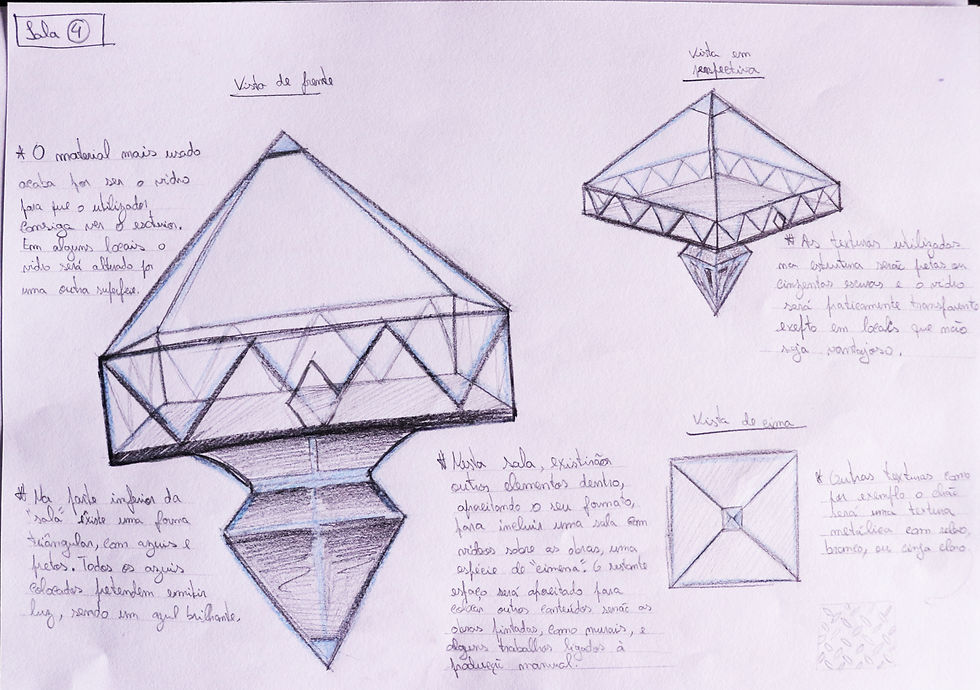 Sala 4
Vista de frente
Vista em
perspectiva
* O material mais usado
acaba por ser o vidro
para que o utilizador
consiga ver o exterior.
Em alguns locais o
vidro será alterado por
uma outra superfície.
* As texturas utilizadas
na estrutura serão pretas ou
cinzentas escuras e o vidro
será praticamente transparente
exepto em locais que não
seja vantajoso.
Vista de cima
* Na parte inferior da
"sala" existe uma forma
triângular, com azuis e
pretos. Todos os azuis
colocados pretendem emitir
luz, sendo um azul brilhante.
* Nesta sala, existirão
outros elementos dentro,
aproveitando o seu formato,
para incluir uma sala com
vídeos sobre as obras, uma
espécie de "cinema". O restante
espaço será aproveitado para
colocar outros conteúdos senão as
obras pintadas, como murais, e
alguns trabalhos ligados à
produção manual.
* Outras texturas como
por exemplo o chão
será uma textura
metálica com
branco, ou cinza claro